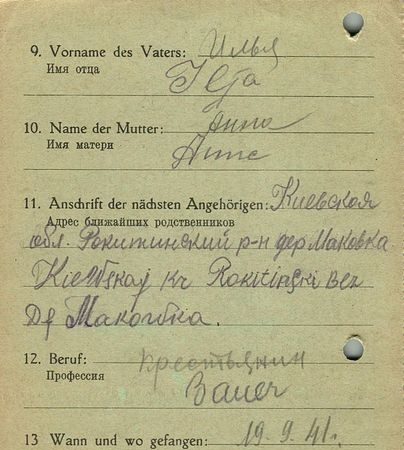 9. Vorname des Vaters: Илья
Имя отца
Ilja
10. Name der Mutter: Анна
Имя матери
Anna
11. Anschrift der nächsten Angehörigen: Киевская
Адрес ближайших родственников
обл. Рокитинский р-н дер Маковка
Kiewskaj Kr Rokitinski Bez
Df Makowka.
12. Beruf: крестьянин
Профессия
Bauer
13 Wann und wo gefangen: 19. 9. 41г.